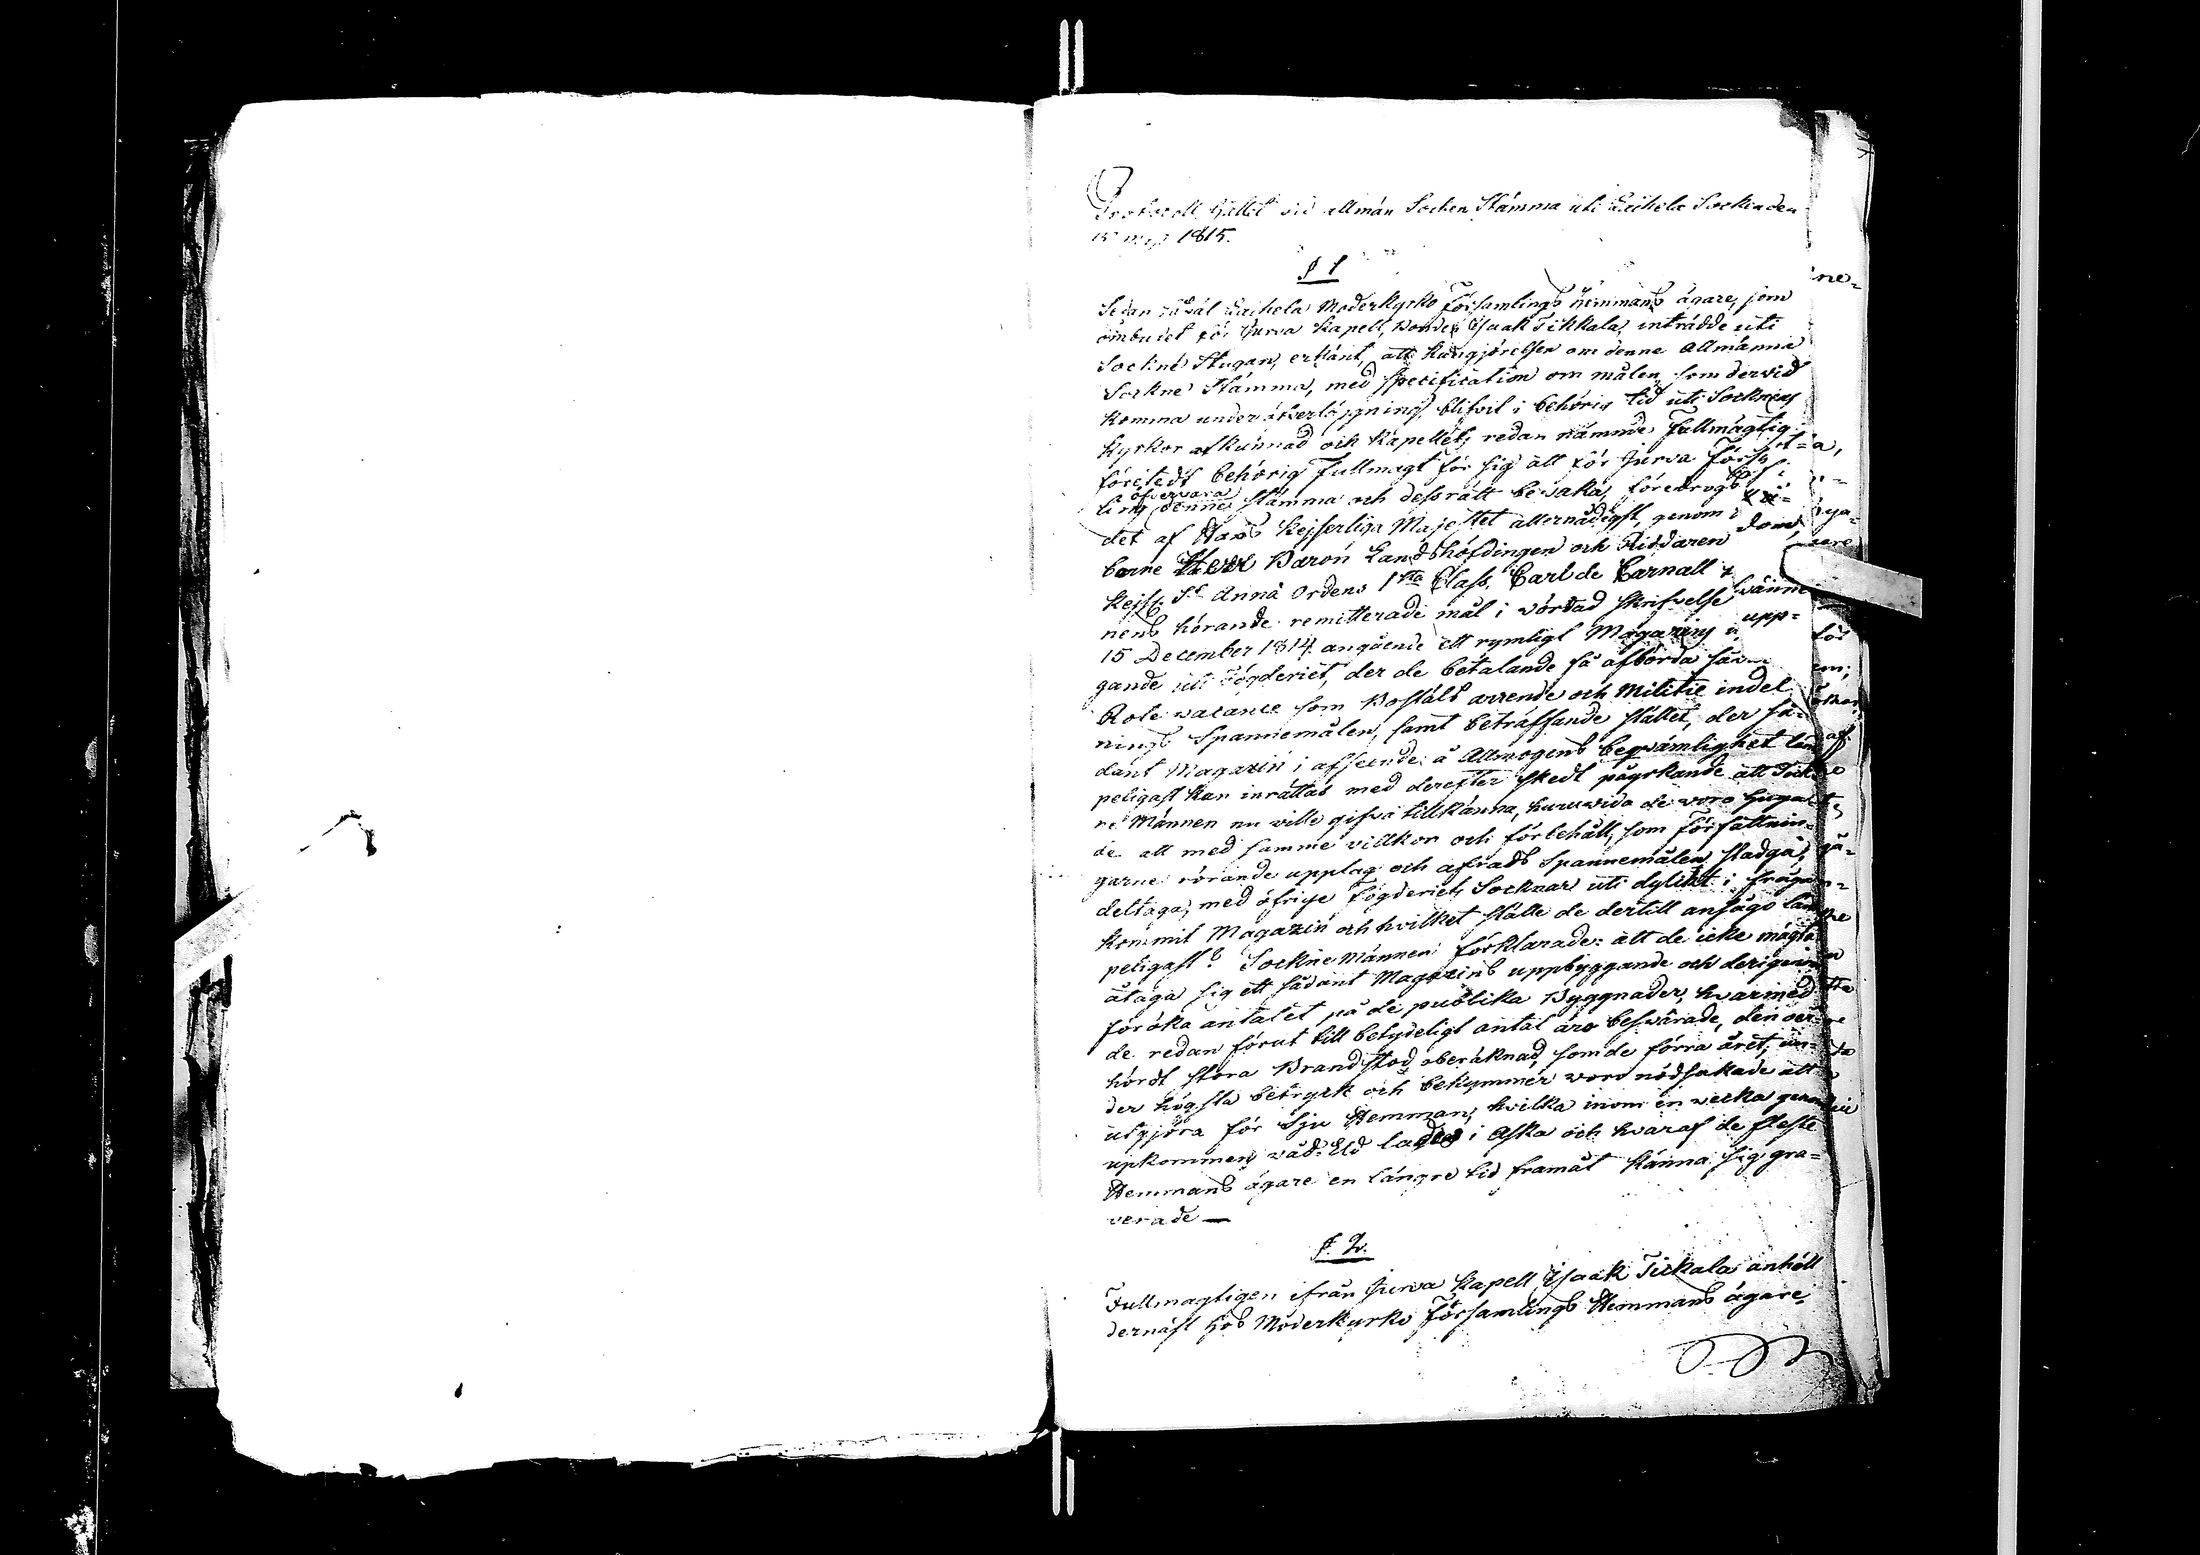 Protocoll hållit vid allmän Socken Stämma uti Laihela Socken den
15 Maji 1815.
§ 1
Sedan såväl Laihela Moderkyrko Församlings Hemmans ägare, som
ombudet för Jurva Kapell, Bonden Isaak Tikkala, inträdde uti
Sockne Stugan, erkänt, att kungjörelsen om denne Allmänna
Sockne Stämma, med specification om målen, som dervid
komma under öfverläggning, blifvit i behörig tid uti Socknens
Kyrkor afkunnad och Kapellets redan nämnde Fullmägtig
företedt behörig Fullmagt för sig att för Jurva Försam
ling denne stämma öfvervara och dess rätt bevaka,föredrogs
det af Hans Kejserliga Majestet allernådigst, genom
borne Herr Baron Landshöfdingen och Riddaren
Kejs. St Annæ Ordens 1sta Class, Carl de Carnall
nens hörande remitterade mål i vördad skrifvelse
15 December 1814 angående ett rymligt Magazins upp=
gande uti Fögderiet, der de betalande få afbörda
Rote vacance som Boställs arrende och Militie indel
nings Spannemålen, samt beträffande stället, der så=
dant Magazin i afseende å Allmogens beqvämlighet läm
peligast kan inrättas med derefter skedt påyrkande att Sock
ne Männen nu ville gifva tillkänna, huruvida de voro huga
de att med samme villkor och förbehåll, som Författnin=
garne rörande upplag och afrads Spannemålen stadga,
deltaga, med öfrige Fögderiets Socknar uti dylikt i fråga
kommit Magazin och hvilket ställe de dertill ansågo läm
peligast? Sockne Männen förklarade: att de icke mägta
åtaga sig ett sådant Magazins uppbyggande och derigenom
föröka antalet på de publika Byggnader, hvarmed
de redan förut till betydeligt antal äro besvärade, den oer=
hördt stora Brandstod oberäknad, som de förra året, un=
der högsta betryck och bekymmer voro nödsakade att
utgjöra för Sju Hemman, hvilka inom en vecka genom
upkommen våd-Eld lades i Aska och hvaraf de fleste
Hemmans ägare en längre tid framåt känna sig gra=
verade —
§ 2.
Fullmagtigen ifrån Jurva Kapell Isaak Tickala anhöll
dernäst hos Moderkyrko Församlings Hemmans ägare,